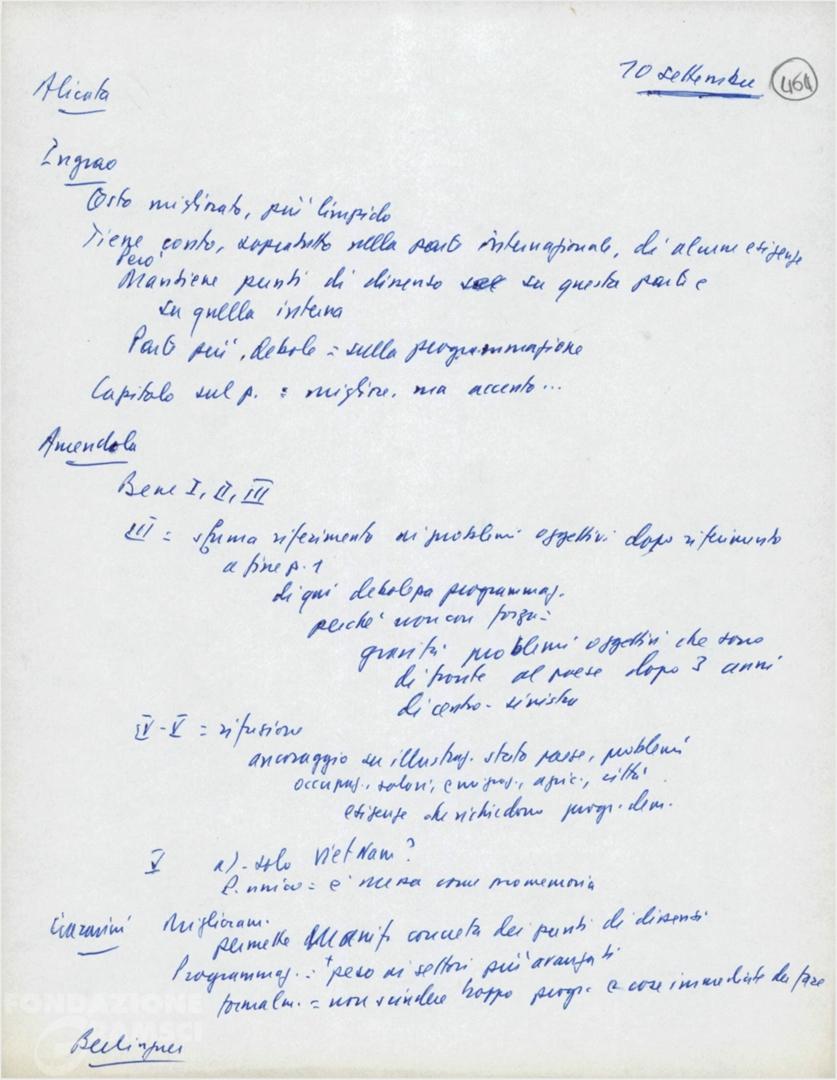 10 settembre 464
Alicata
Ingrao
Testo migliorato, più limpido
Tiene conto, soprattutto nella parte internazionale, di alcune esigenze
Però
Mantiene punti di dissenso su questa parte e
su quella interna
Parte più debole = sulla programmazione
Capitolo sul p. = migliore, ma accento...
Amendola
Bene I, II, III
III = sfuma riferimento ai problemi oggettivi dopo riferimento
a fine p. 1
di qui debolezza programmaz.
perché non con forza =
gravità problemi oggettivi che sono
di fronte al paese dopo 3 anni
di centro-sinistra
IV-V = rifusione
ancoraggio su illustraz. stato paese, problemi
occupaz., salari, emigraz., agric., città
esigenze che richiedono progr. dem.
V a) - solo Viet Nam?
P. unico = è messa come promemoria
Miglioram.
permette concreta dei punti di dissensi
Programmaz. = + peso ai settori più avanzati
formalm. = non scindere troppo progr. e cose immediate da fare
Berlinguer
FONDAZIONE
GRAMSCI